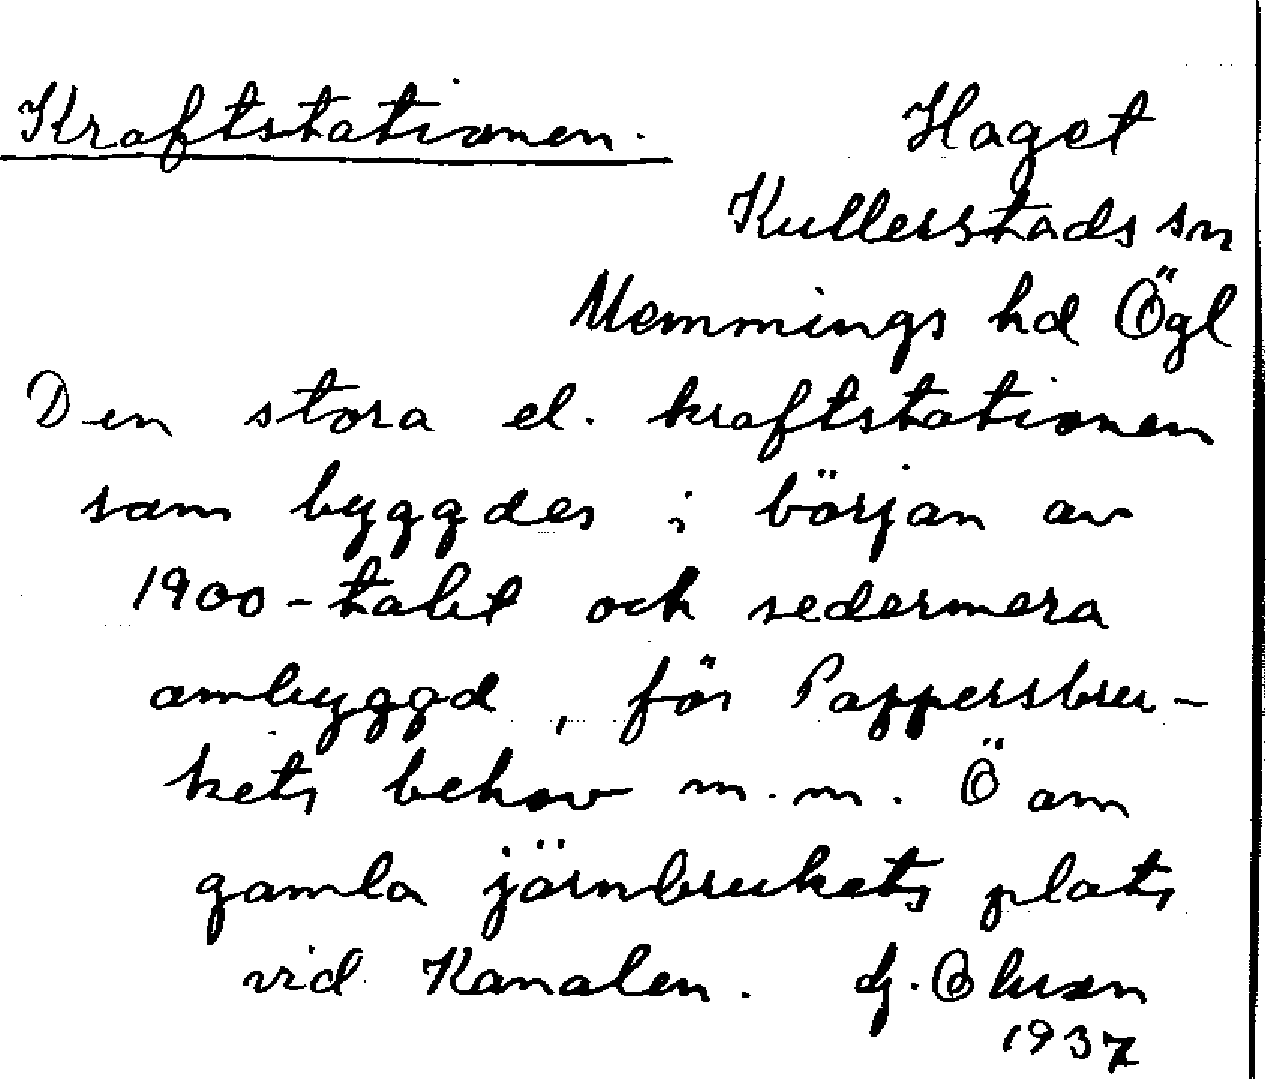 Kraftstationen. Haget
Kullerstads sn
Memmings hd Ögl
Den stora el. kraftstationen
som byggdes i början av
1900-talet och sedermera
ombyggd, för Pappersbru-
kets behov m.m. Ö om
gamla järnbrukets plats
vid Kanalen.
1937